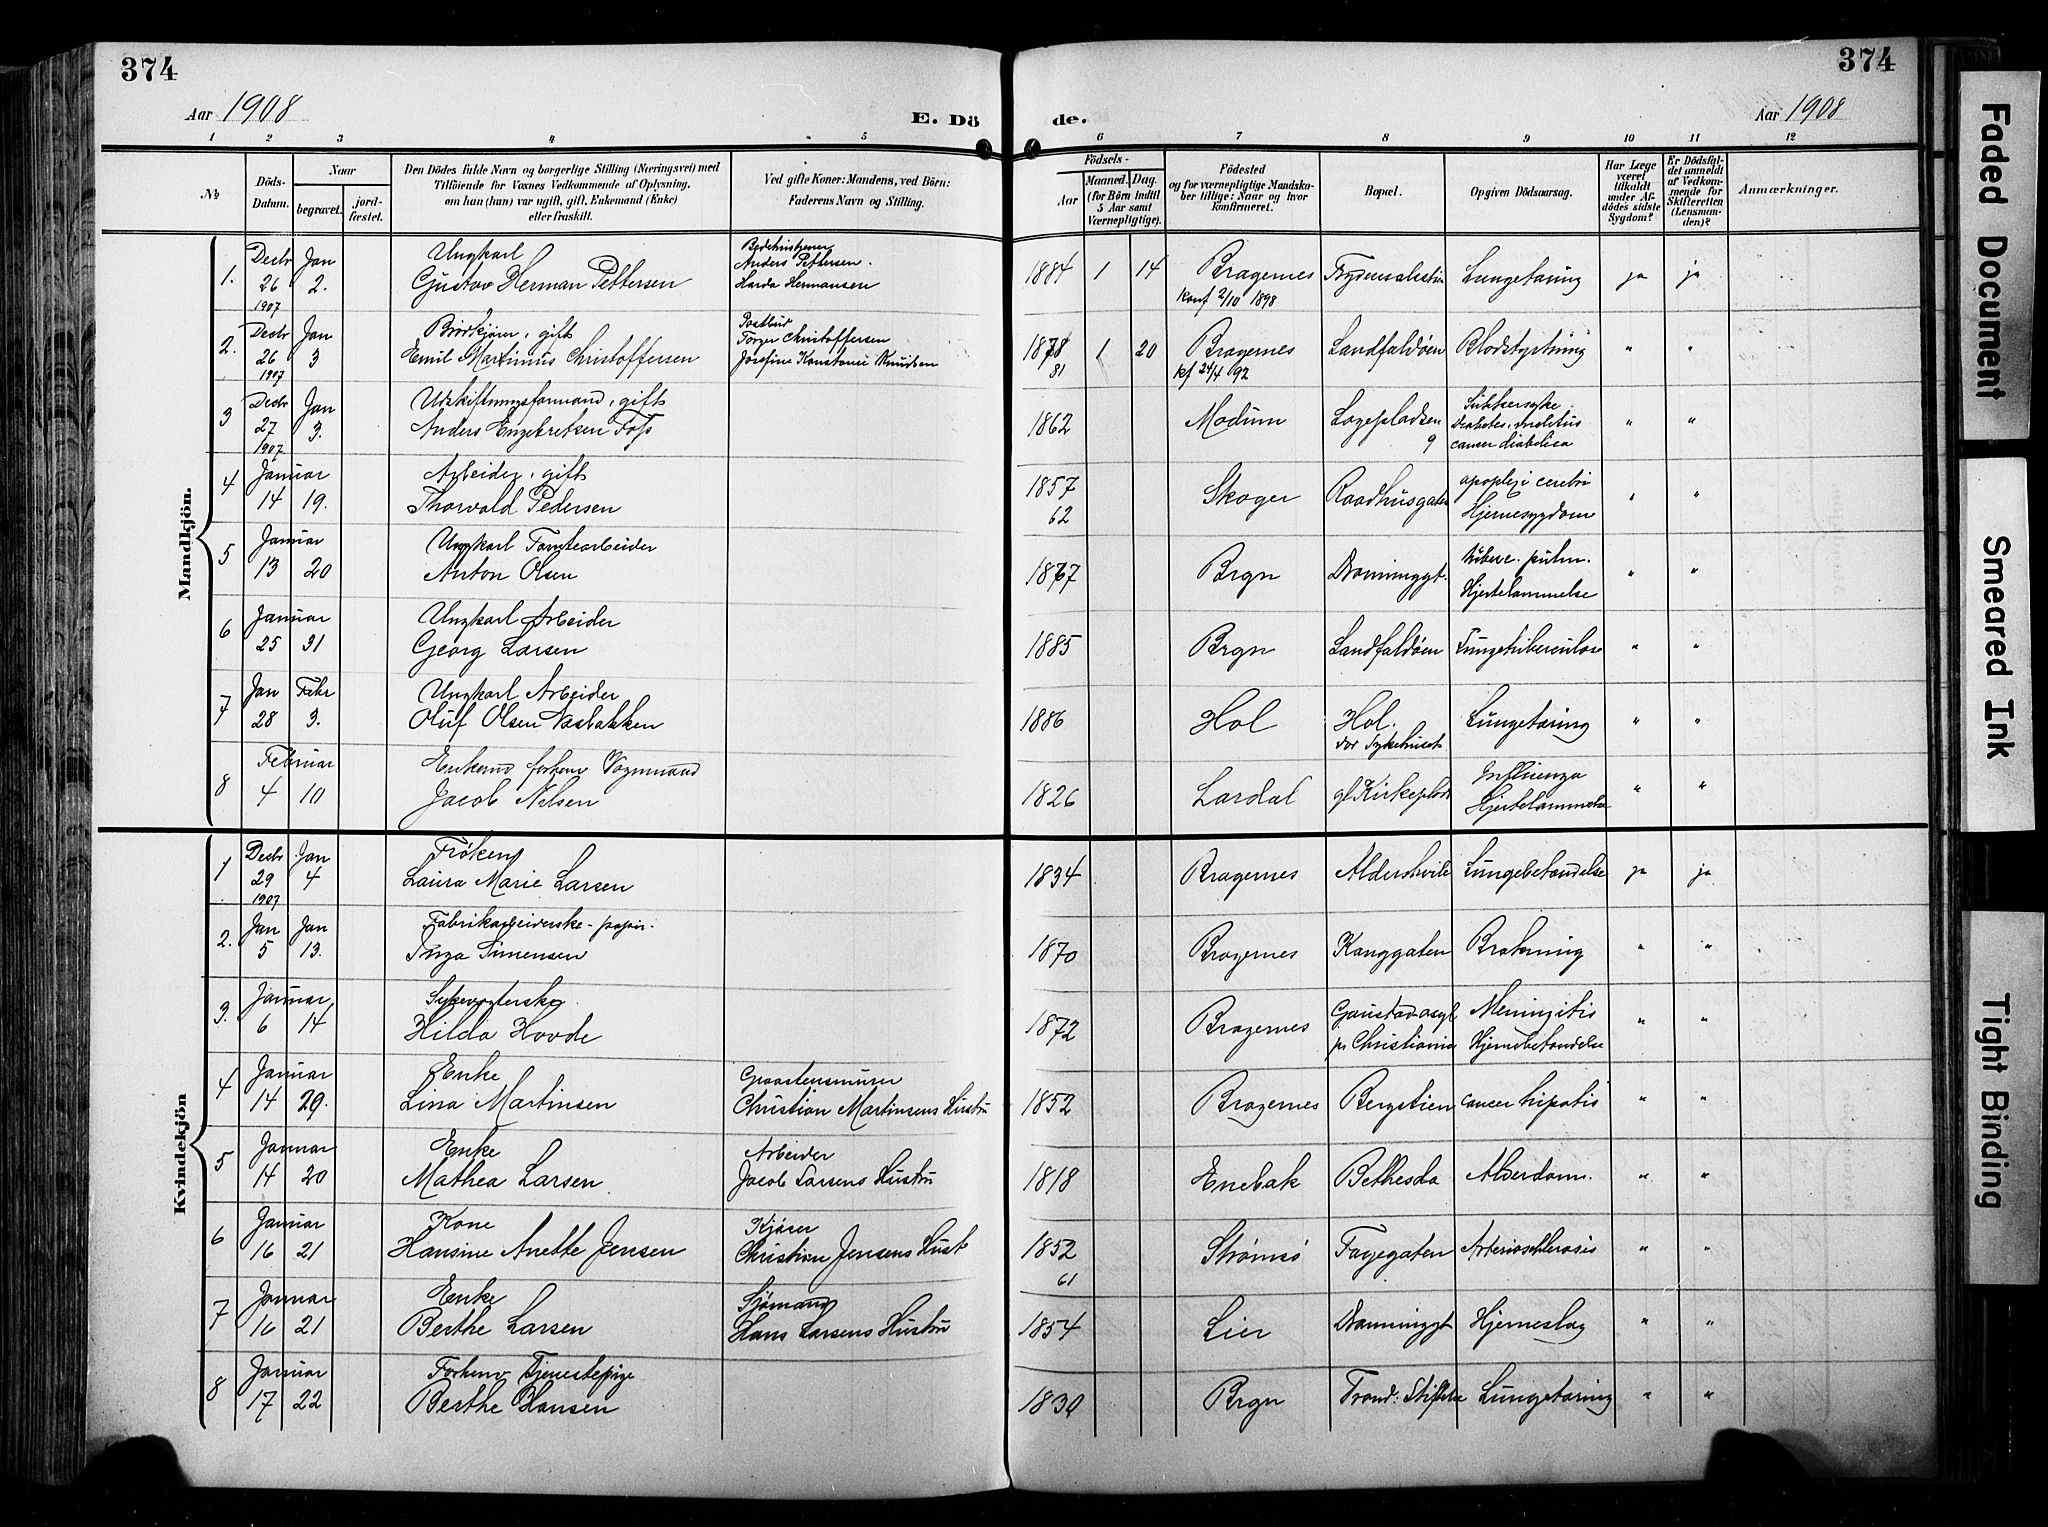 374
374
Aar 1908
E. Dö
de.
Aar 1908
1 2 3 4 5 6 7 8 9 10 11 12
No
Döds-
Datum.
Naar
begravet.
jord-
fæstet.
Den Dödes fulde Navn og borgerlige Stilling (Næringsvei) med
Tilföiende for Voxnes Vedkommende af Oplysning,
om han (hun) var ugift, gift, Enkemand (Enke)
eller fraskilt.
Ved gifte Koner: Mandens, ved Börn:
Faderens Navn og Stilling.
Födsels-
Aar
Maaned. Dag.
(for Börn indtil
5 Aar samt
Værnepligtige).
Födested
og for værnepligtige Mandska-
ber tillige: Naar og hvor
konfirmeret.
Bopæl.
Opgiven Dödsaarsag.
Har Læge
været
tilkaldt
under Af-
dödes sidste
Sygdom?
Er Dödsfal-
det anmeldt
af Vedkom-
mende for
Skifteretten
(Lensman-
den)?
Anmærkninger.
Mandkjön.
1. Decbr 26 1907 Jan 2. Ungkarl
Gustav Herman Pettersen
Anders Pettersen.
Hermansen
1884 1 14 Bragernes
konf 2/10 1898
Lungetæring ja ja
2. Decbr 26 1907 Jan 3 Brødkjører, gift
Emil Martinus Christoffersen
Postbud
Torger Christoffersen
Josefine Konstanse Knudsen
1878 81 1 20 Bragernes
kf 24/4 92
Landfaldøen Blodstyrtning " "
3 Decbr 27 1907 Jan 3. Udskiftningsformand, gift
Anders Engebretsen Foss
1862 Modum Løgepladsen
9
Sukkersyke
Diabetes melitus
diabetica " "
4 Januar 14 19. Arbeider, gift
Thorvald Pedersen
1857 62 Skoger Raadhusgaten apoplexi cerebri
Hjernesygdom " "
5 Januar 13 20 Ungkarl Tomtearbeider
Anton Olsen
1867 Brgn Dronninggt. tuberc. pulm.
Hjertelammelse " "
6 Januar 25 31 Ungkarl Arbeider
Georg Larsen
1885 Brgn Landfaldøen Lungetuberculose " "
7 Jan 28 Febr 3. Ungkarl Arbeider
Oluf Olsen Næsbakken
1886 Hol Hol.
Sykehuset
Lungetæring " "
8 Februar 4 10 Enkemd forhenv Vognmand
Jacob Nilsen
1826 Lardal gl Kirkeplads Influenza
Hjertelammelse " "
Kvindekjön
1 Decbr 29 1907 Jan 4 Frøken
Laura Marie Larsen
1834 Bragernes Aldershvile Lungebetændelse ja ja
2. Jan 5 Jan 13. Fabrikarbeiderske - papir.
Inga Simensen
1870 Bragernes Konggaten " "
3. Januar 6 14 Sykevogterske
Hilda Hovde
1872 Bragernes Gaustad asyl
pr Christiania
Meningitis
Hjernebetændelse " "
4 Januar 14 29. Enke
Lina Martinsen
Graastensmurer
Christian Martinsens Hustru
1852 Bragernes Bergstien cancer hepatis " "
5 Januar 14 20 Enke
Mathea Larsen
Arbeider
Jacob Larsens Hustru
1818 Enebak Bethesda Alderdom. " "
6 Januar 16 21 Kone
Hansine Anette Jensen
Kjøser
Christian Jensens Hust
1852 61 Strømsø Fayegaten Arteriosklerosis " "
7 Januar 16 21 Enke
Berthe Larsen
Sjømand
Hans Larsens Hustru
1854 Lier Dronninggt Hjerneslag " "
8 Januar 17 22 Forhenv Tjenestepige
Berthe Hansen
1830 Brgn Lungetæring " "
Faded Document
Smeared Ink
Tight Binding